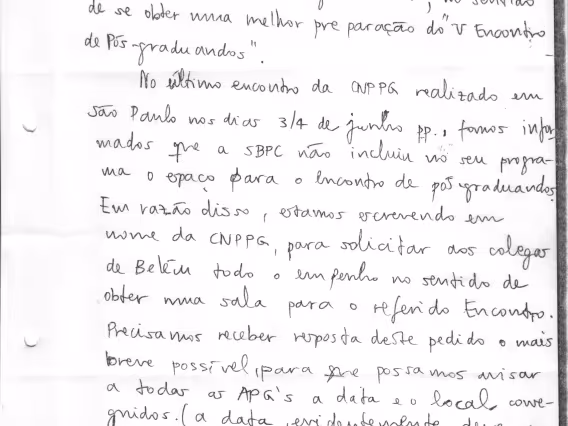 no sentido
de se obter uma melhor preparação do "V Encontro
de Pós-graduandos".
No último encontro da CNPPG realizado em
São Paulo nos dias 3/4 de junho pp., fomos infor
mados que a SBPC não incluiu no seu progra-
ma o espaço para o encontro de pós-graduandos.
Em razão disso, estamos escrevendo em
nome da CNPPG, para solicitar aos colegas
de Belém todo o empenho no sentido de
obter uma sala para o referido Encontro.
Precisamos receber resposta deste pedido o mais
breve possível, para que possamos avisar
a todas as APG's a data e o local conse-
guidos. (a data, evidentemente